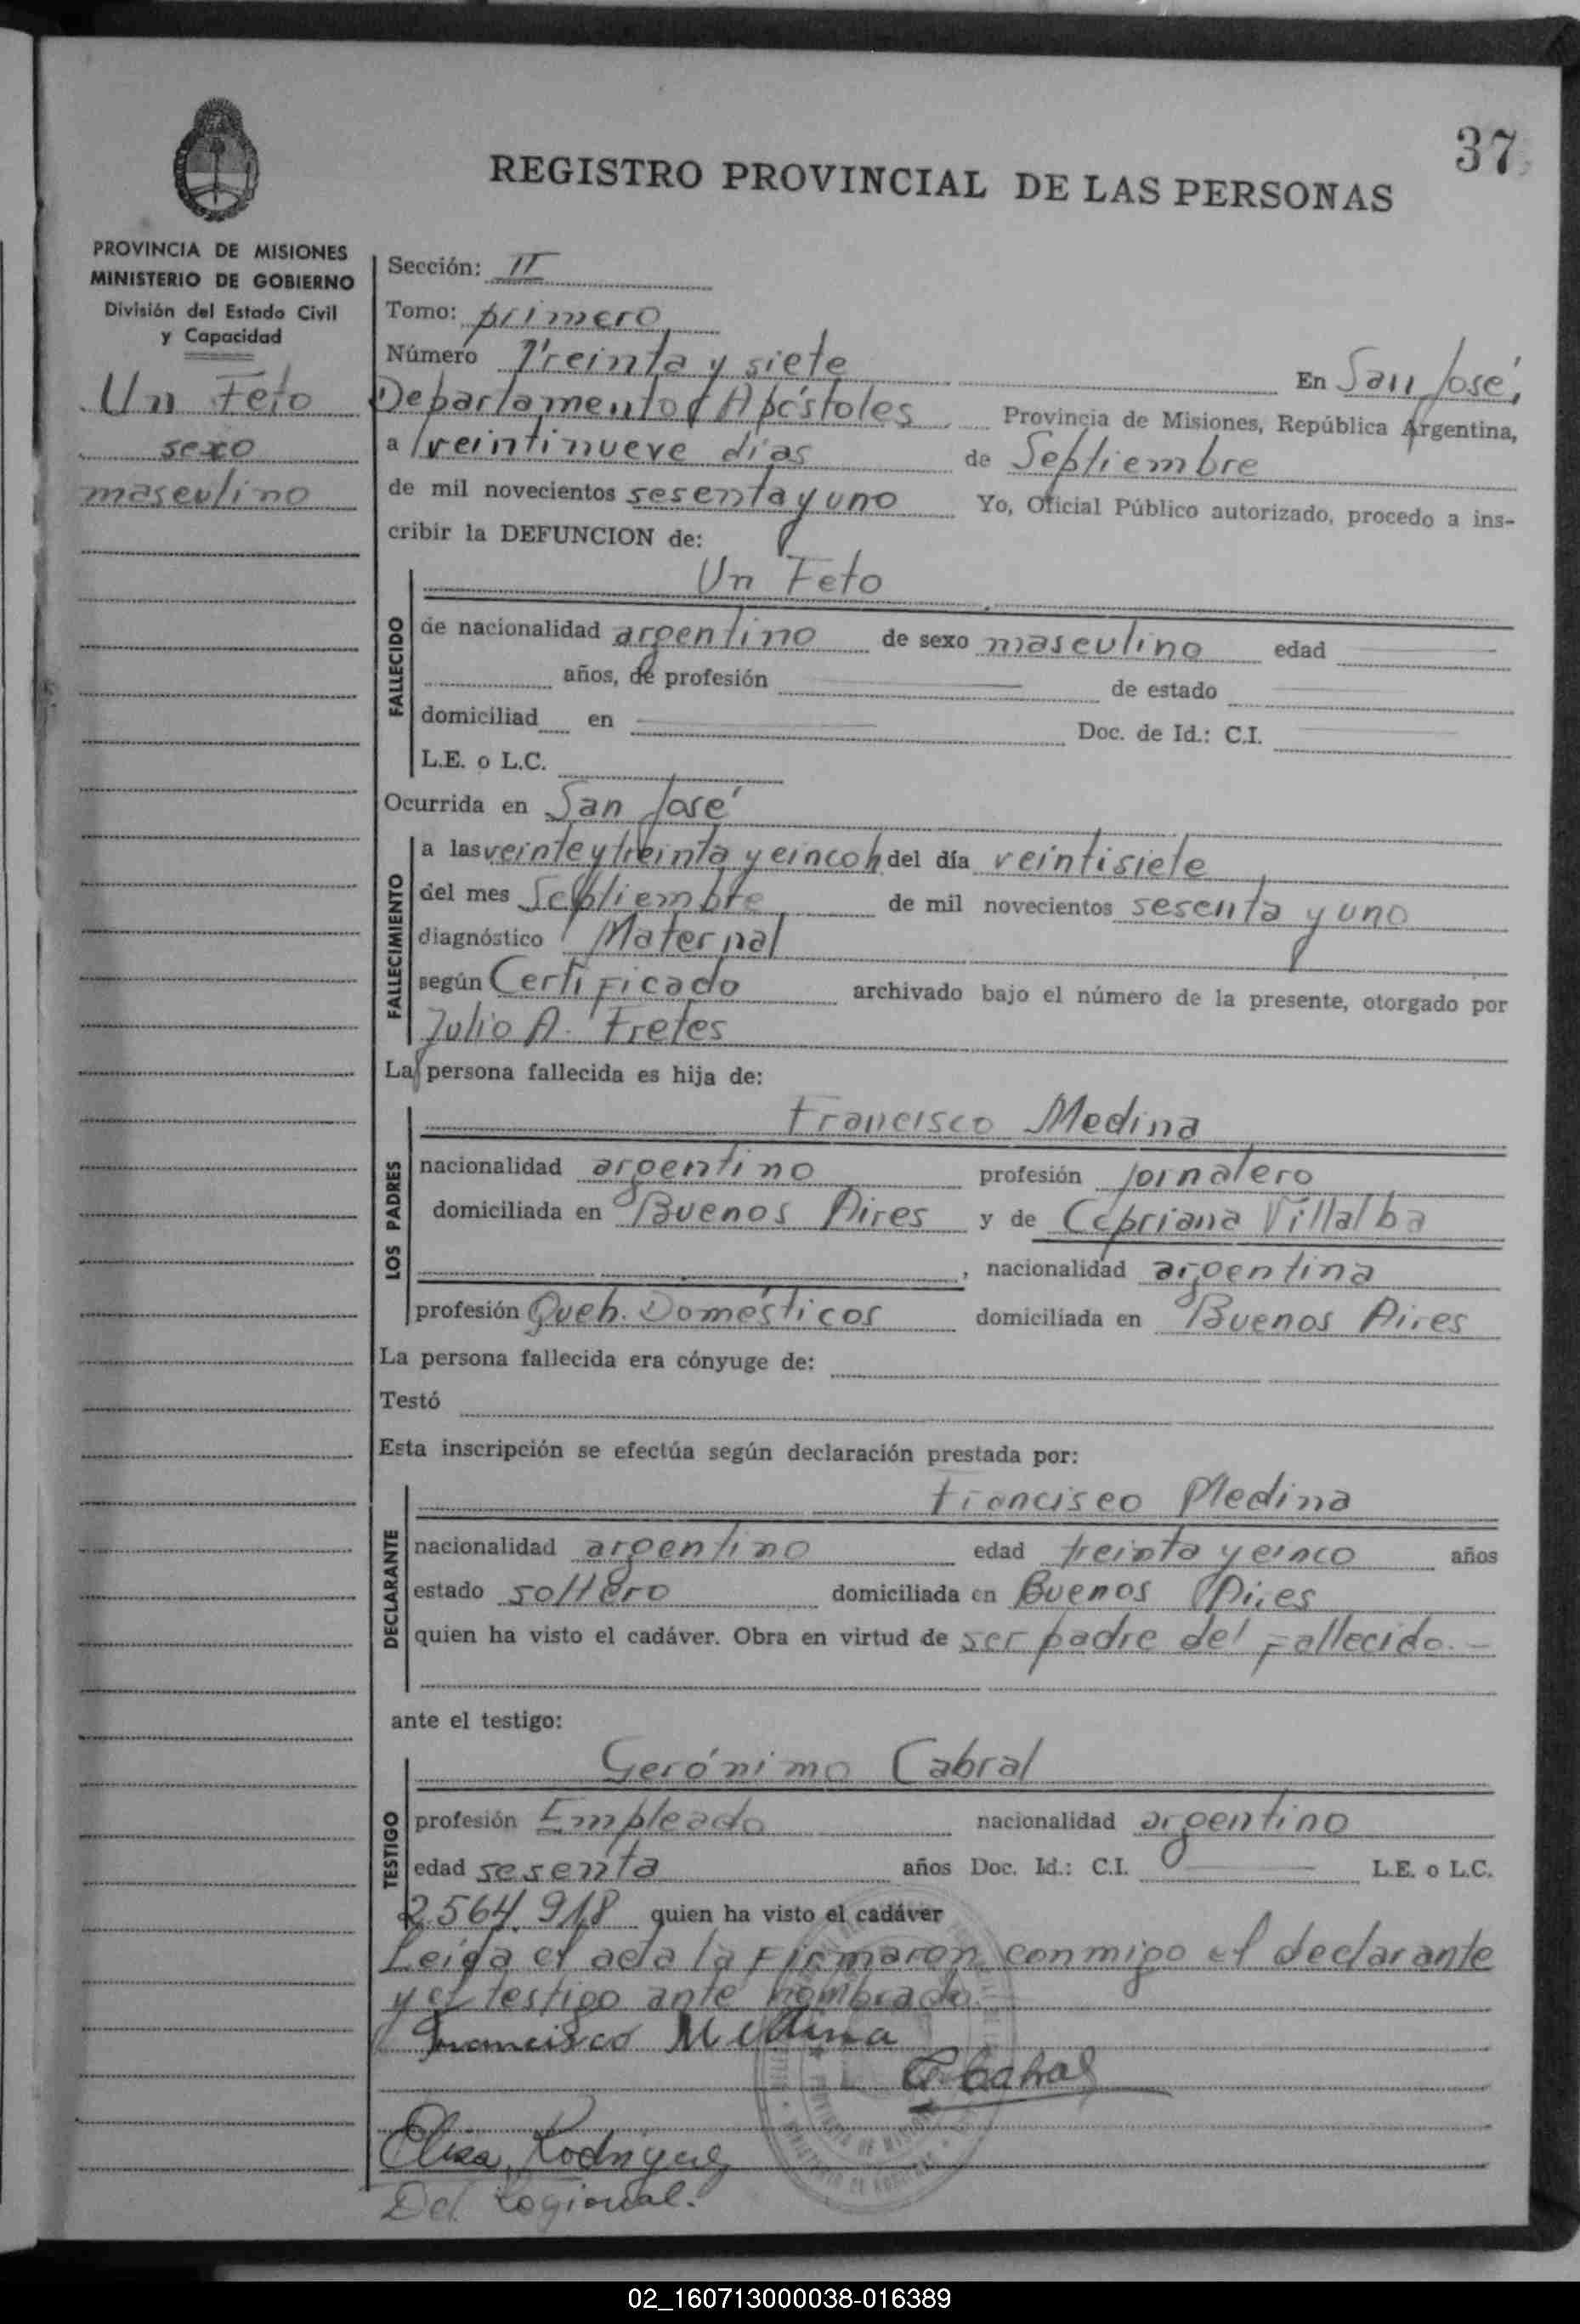 37
REGISTRO PROVINCIAL DE LAS PERSONAS
PROVINCIA DE MISIONES
MINISTERIO DE GOBIERNO
División del Estado Civil
y Capacidad
Un Feto
sexo
masculino
Sección: II
Tomo: primero
Número Treinta y siete En San José,
Departamento Apóstoles Provincia de Misiones, República Argentina,
a veintinueve días de Septiembre
de mil novecientos sesenta y uno Yo, Oficial Público autorizado, procedo a ins-
cribir la DEFUNCION de:
FALLECIDO
Un Feto
de nacionalidad argentino de sexo masculino edad
años, de profesión de estado
domiciliad en Doc. de Id.: C.I.
L.E. o L.C.
Ocurrida en San José
FALLECIMIENTO
a las veinte y treinta y cinco h del día veintisiete
del mes Septiembre de mil novecientos sesenta y uno
diagnóstico Maternal
según Certificado archivado bajo el número de la presente, otorgado por
Julio A. Fretes
La persona fallecida es hija de:
LOS PADRES
Francisco Medina
nacionalidad argentino profesión jornalero
domiciliada en Buenos Aires y de Cepriana Villalba
, nacionalidad argentina
profesión Queh. Domésticos domiciliada en Buenos Aires
La persona fallecida era cónyuge de:
Testó
Esta inscripción se efectúa según declaración prestada por:
DECLARANTE
Francisco Medina
nacionalidad argentino edad treinta y cinco años
estado soltero domiciliada en Buenos Aires
quien ha visto el cadáver. Obra en virtud de ser padre del fallecido.-
ante el testigo:
TESTIGO
Gerónimo Cabral
profesión Empleado nacionalidad argentino
edad sesenta años Doc. Id.: C.I. L.E. o L.C.
2.564.918 quien ha visto el cadáver
Leída el acta la firmaron conmigo el declarante
y el testigo ante nombrado.-
Francisco Medina
G Cabral
Elisa Rodriguez
Del Regional.
02_160713000038-016389